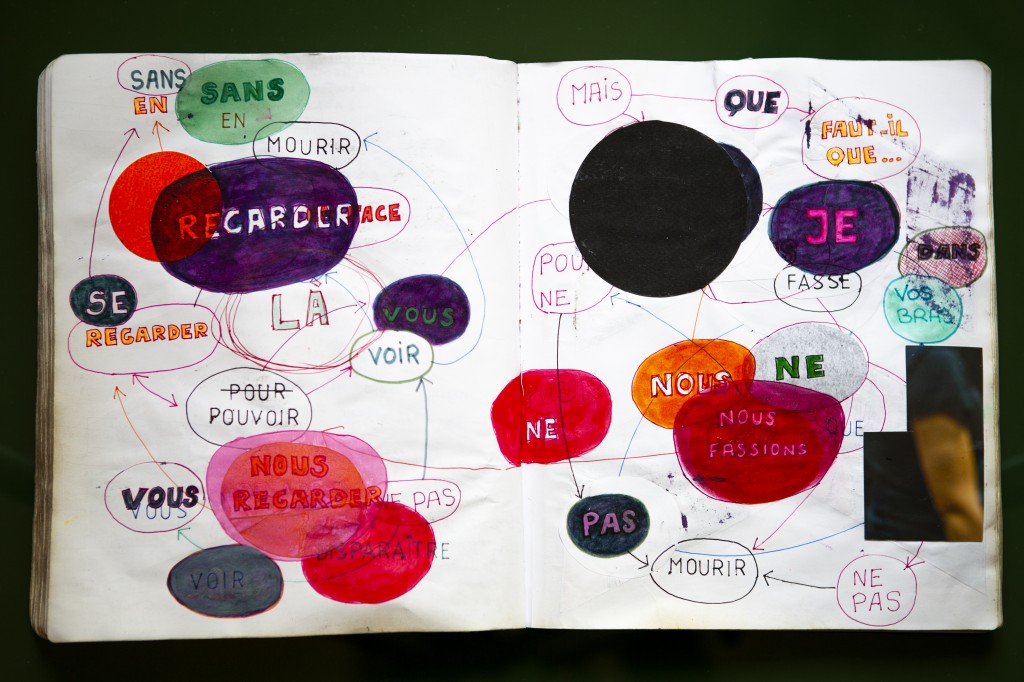 SANS
EN
SANS
EN
MOURIR
REGARDER
FACE
SE
REGARDER
LÀ
VOUS
VOIR
POUR
POUVOIR
NOUS
REGARDER
NE PAS
VOUS
VOUS
DISPARAÎTRE
VOIR
MAIS
QUE
FAUT-IL
QUE...
JE
DANS
FASSE
VOS
BRAS
NE
NOUS
NE
NE
NOUS
FASSIONS
QUE
PAS
MOURIR
NE
PAS